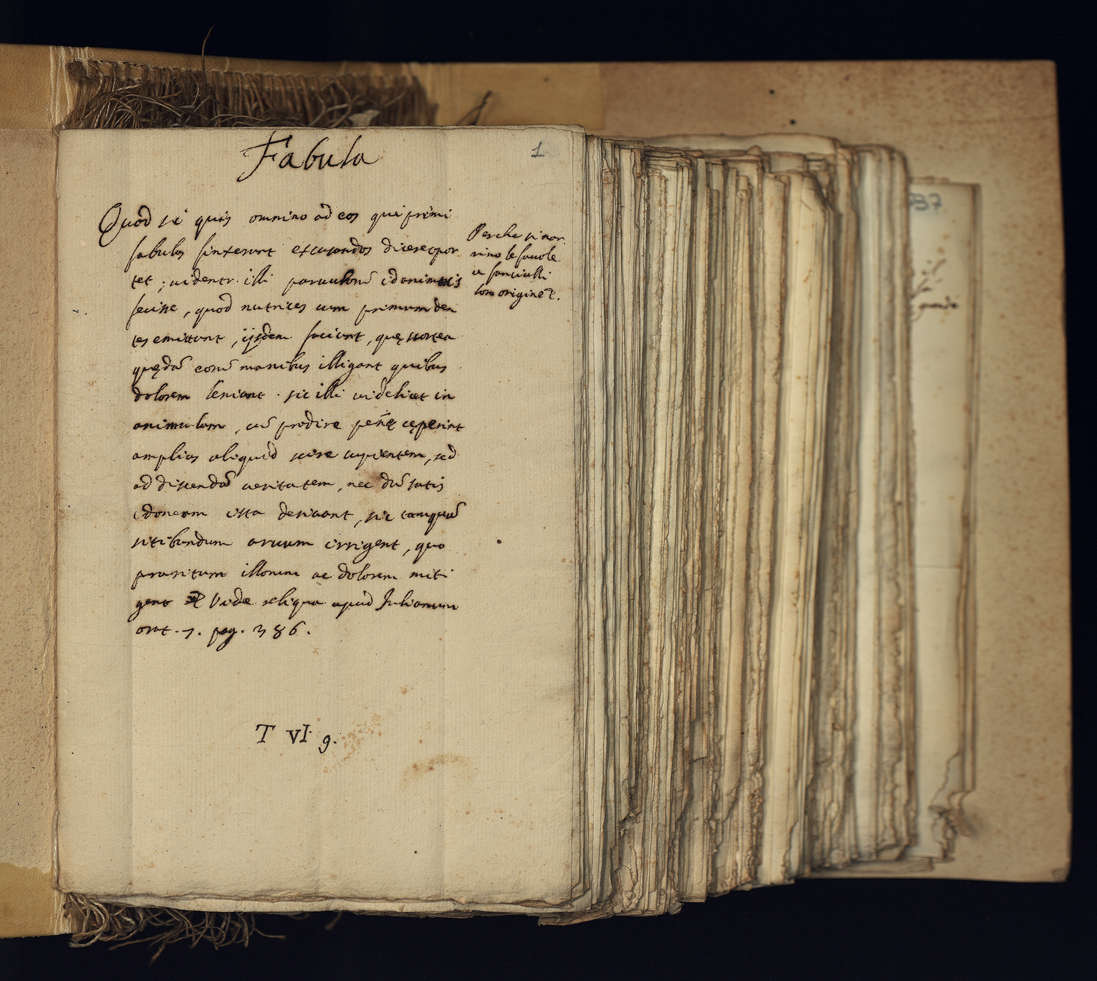 Fabula
1
Quod si quis omnino ad eos qui primi
fabulas finxerunt excusandos dicere opor
tet; uidentr. illi paruulorũ idonimis
fecisse, quod nutrices cum primum den
tes emittunt, ijsdem faciunt, quę scortea
quędã eorũ manibus illigant quibus
dolorem leniant. sic illi uidelicet in
animulam, cũ prodire pennę cęperint
amplius aliquid scire cupientem, sed
ad discendã ueritatem, nec dũ satis
idoneam ista deriuant, sic tamquã
sitibundum aruum irrigent, quo
pruritum illorum ac dolorem miti
gent Vide reliqua apud Julianum
orat. 7. pag. 386.
Perche si nor
rino le fauole
a fanciulli
loro origine
T VI 9.
37